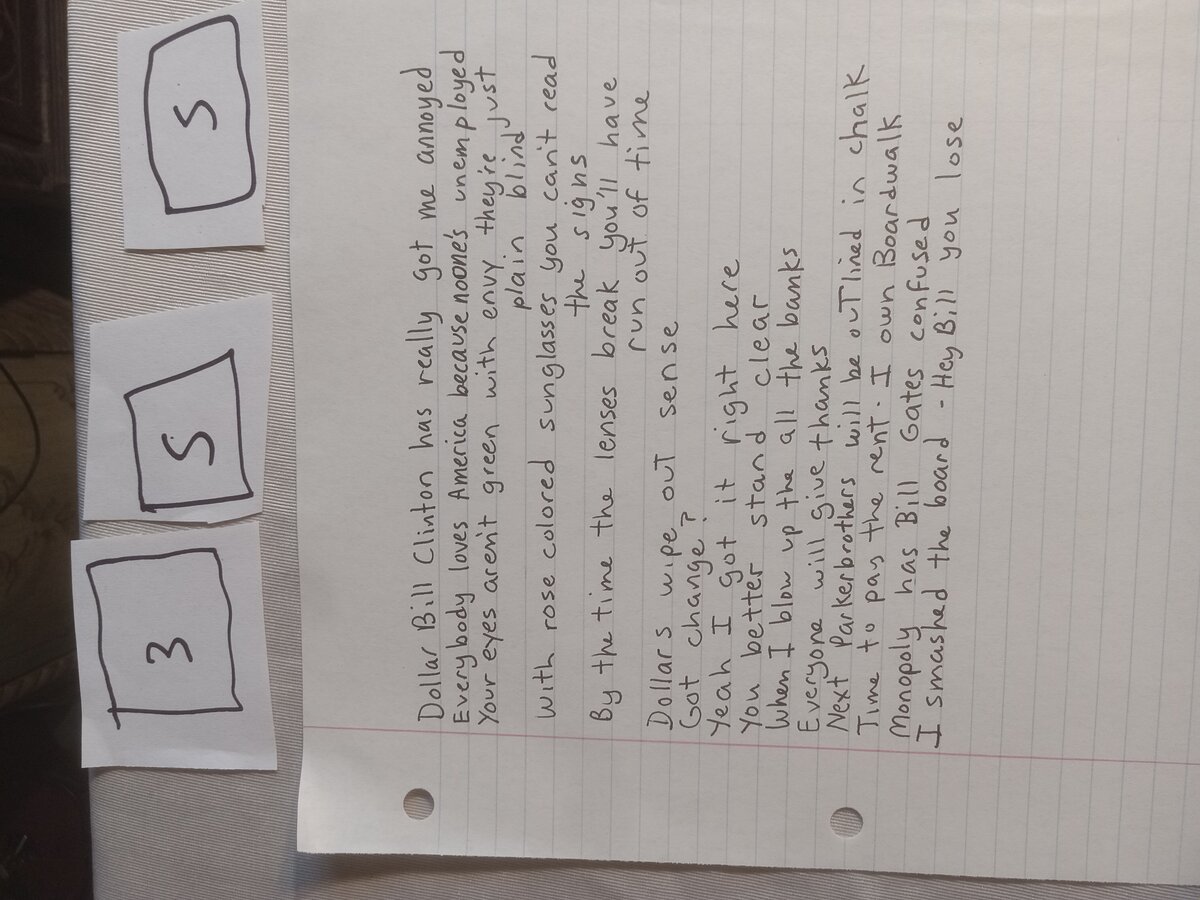 3 5 5
Dollar Bill Clinton has really got me annoyed
Everybody loves America because noone's unemployed
Your eyes aren't green with envy they're just
plain blind
With rose colored sunglasses you can't read
the signs
By the time the lenses break you'll have
run out of time
Dollars wipe out sense
Got change?
Yeah I got it right here
You better stand clear
When I blow up the all the banks
Everyone will give thanks
Next Parkerbrothers will be outlined in chalk
Time to pay the rent. I own Boardwalk
Monopoly has Bill Gates confused
I smashed the board - Hey Bill you lose